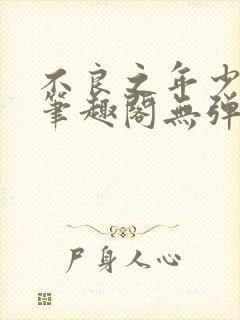 不良之年少
筆趣閣無弹
尸身人心